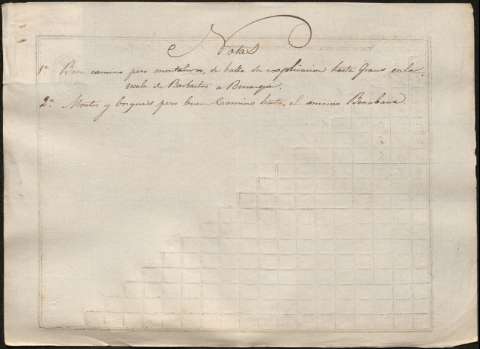 Notas
1ª Buen camino pero montuoso, se halla su esplicacion hasta Graus en la
ruta de Barbastro a Benasque.
2ª Montes y bosques pero buen Camino hasta el mismo Benabarre